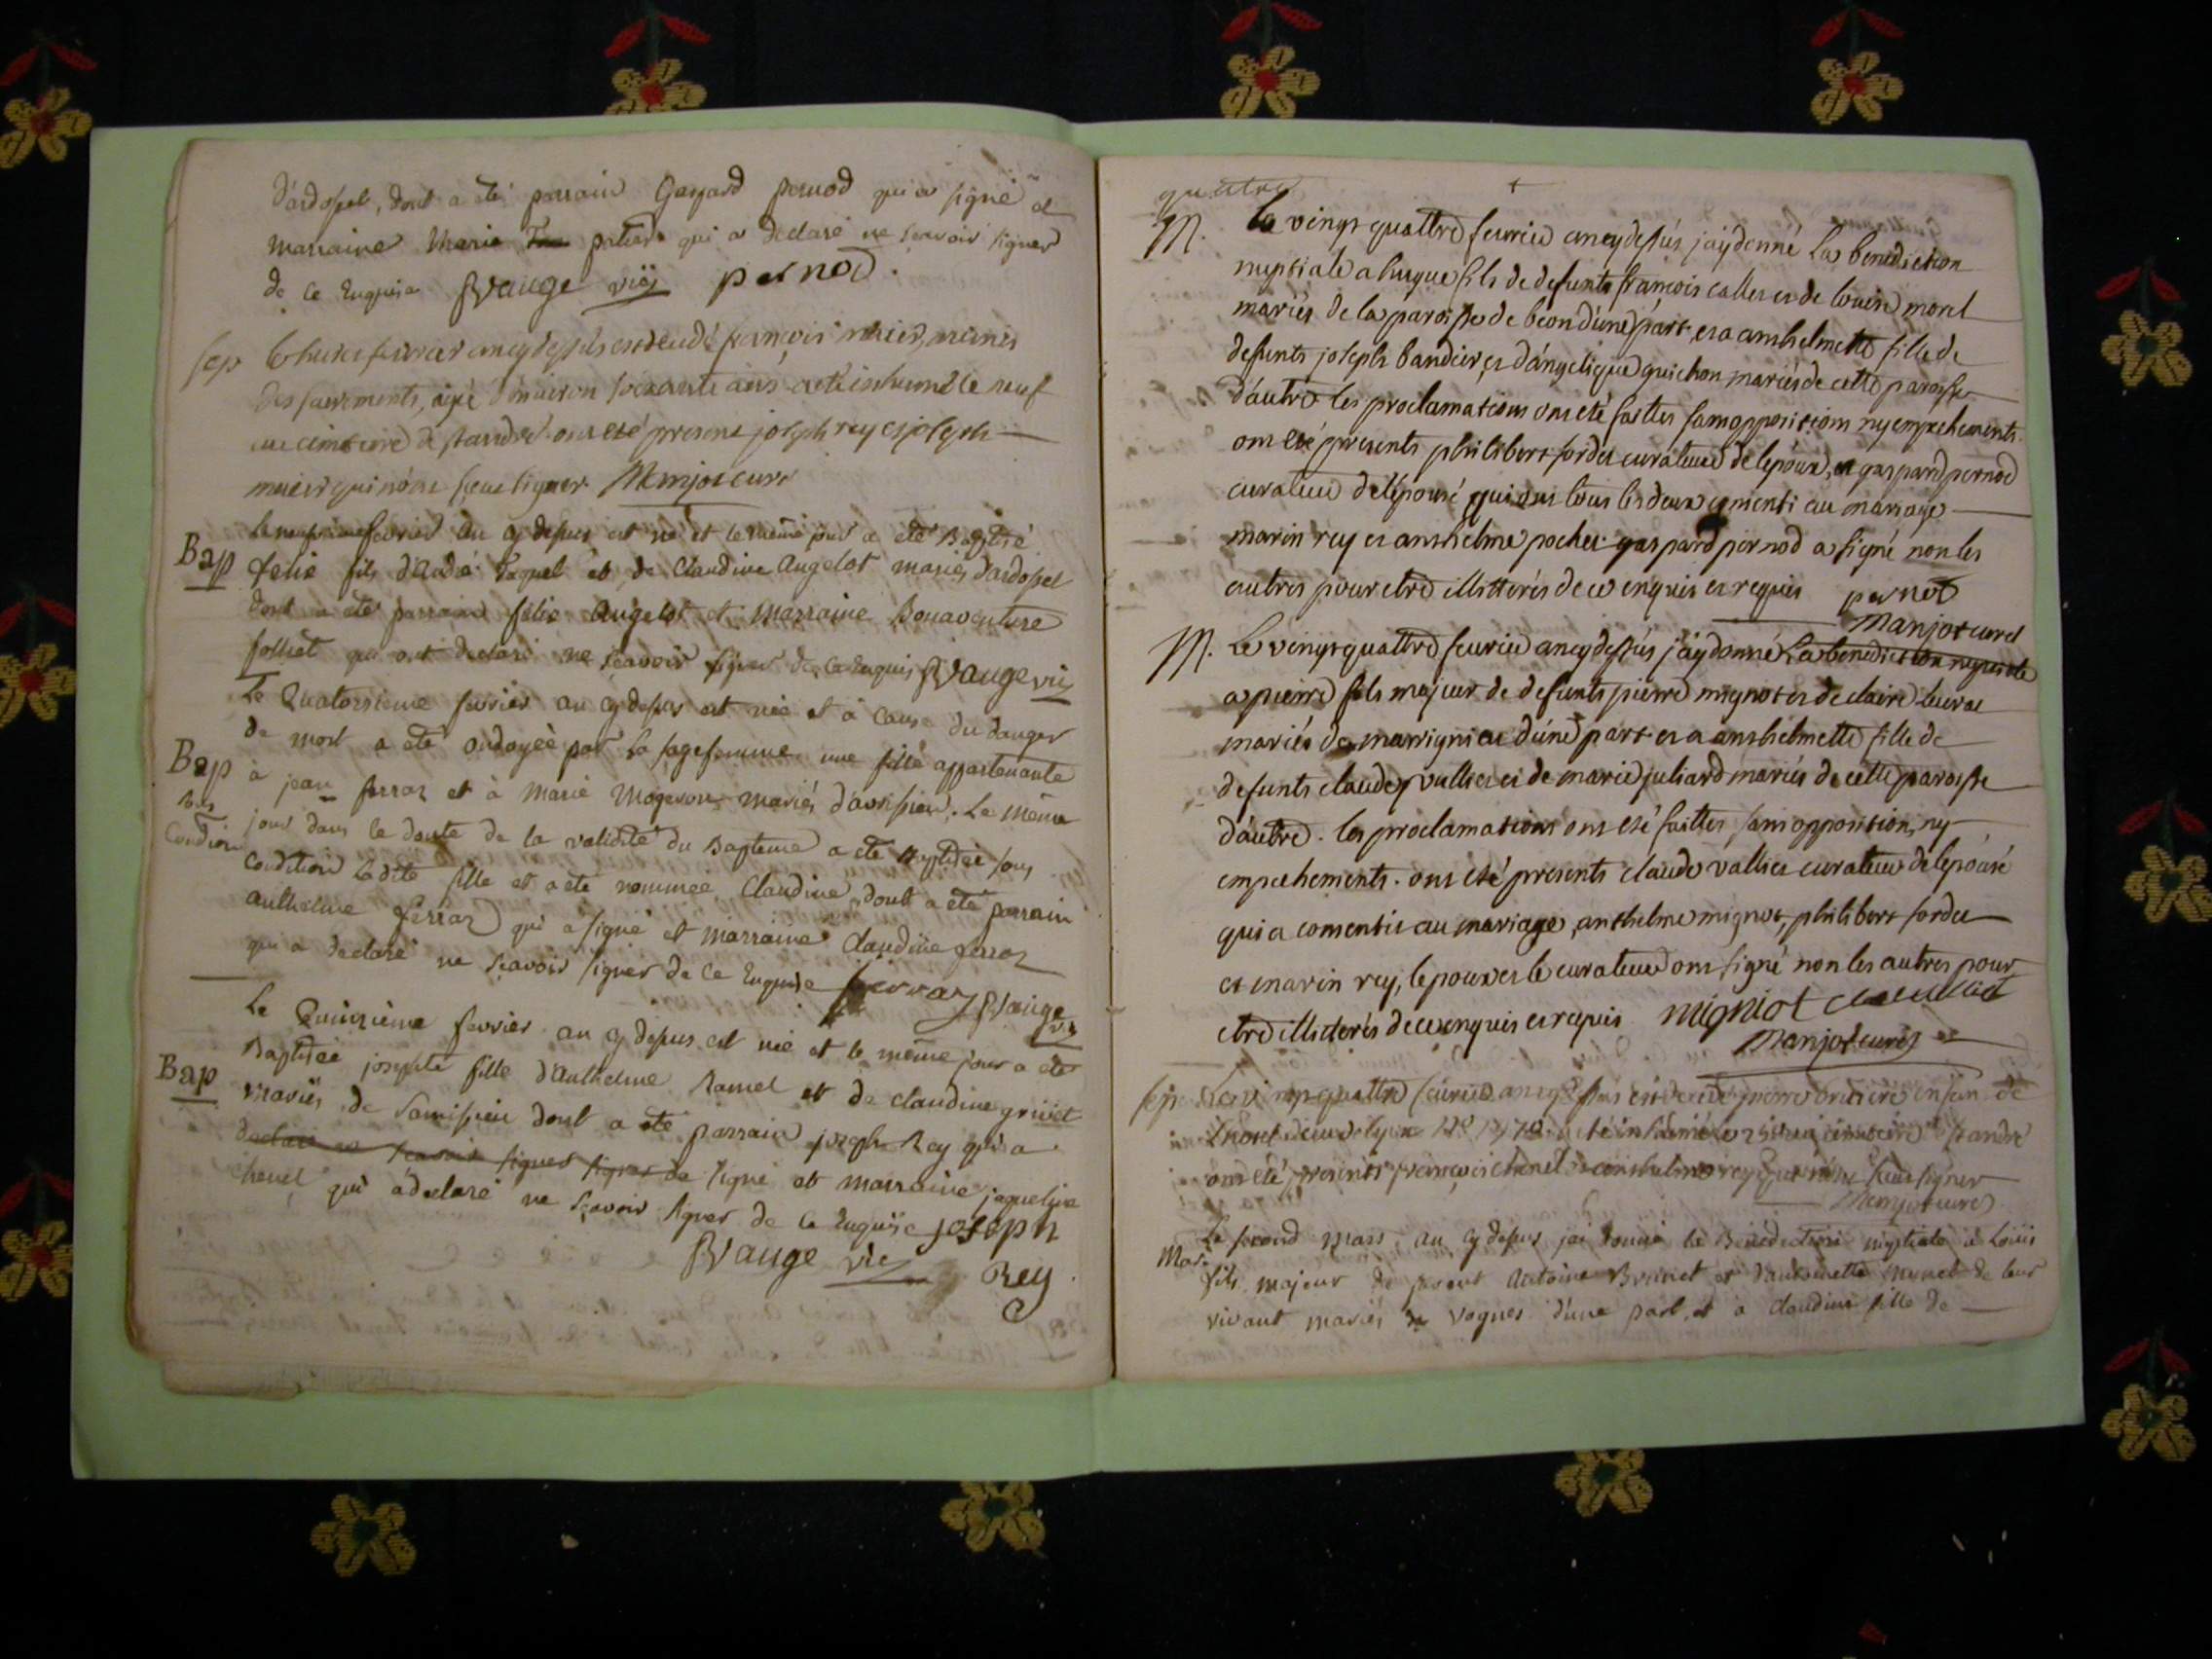 d'ardosset, dont a été parrain Gaspard pernod qui a signé et
marraine Marie qui a declaré ne scavoir signer
de ce enquise Vauge vic pernod.
sep le huict fevrier an cy dessus est decedé françois muier, munis
des sacrements, agé d'environ soixante ans a été inhumé le neuf
au cimetiere de st andré ont eté present joseph rey et joseph
muier qui n'ont sceu signer Manjot curé
le neufvieme fevrier an cy depus est né et le même jour a été Baptisé
Bap felix fils d'andé et de Claudine Angelot mariés d'ardosset
dont a été parrain félix Angelot et marraine Bonaventure
folliet qui ont declaré ne scavoir signer de ce enquis Vauge vic
Le Quatorsieme fevrier an cy depus est née et à cause du danger
de mort a été ondoyée par la sagefemme une fille appartenante
Bap à jean ferraz et à Marie Mogeron mariés d'assisieu. Le même
sous jour dans le doute de la validité du Bapteme a été Baptisée sous
Condition condition ladite fille et a été nommée Claudine, dont a été parrain
anthelme ferraz qui a signé et marraine Claudine ferraz
qui a declaré ne scavoir signer de ce enquise ferraz Vauge
vic
Le Quinzieme fevrier an cy depus est née et le même jour a été
Baptisée josephte fille d'anthelme Ramel et de claudine grivet
Bap mariés de Samissieu dont a été parrain joseph Rey qui a
declaré ne scavoir signer signer de signé et marraine jaqueline
chenel qui a declaré ne scavoir signer de ce enquise joseph
Vauge vic Rey
quattre
M. le vingt quattre feuvrier an cy dessus jay donné la benediction
nuptiale a hugue fils de defunts francois calles et de louise morel
mariés de la paroisse de beon d'une part, et a anthelmette fille de
defunts joseph bandier et d'angelique guichon mariés de cette paroisse
d'autre les proclamations ont eté faittes sans oppositions ny empechements.
ont eté presents philibert fordet curateur de lepoux, et gaspard pernod
curateur de lepouse qui ont tous les deux consenti au mariage
marin rey et anthelme pochet gaspard pernod a signé non les
autres pour etre illitterés de ce enquis et requis pernod
Manjot curé
M. Le vingt quattre feuvrier an cy dessus jay donné la benediction nuptiale
a pierre fils majeur de defunts pierre mignot et de claire
mariés de marignieu d'une part et a anthelmette fille de
defunts claude vullier et de marie juliard mariés de cette paroisse
d'autre. les proclamations ont eté faittes sans opposition, ny
empechements. ont eté presents claude vallier curateur de lepouse
qui a consentit au mariage, anthelme mignot, philibert fordet
et marin rey, lepoux et le curateur ont signé non les autres pour
etre illitterés de ce enquis et requis migniot
Manjot curé
sep Le vingt quattre feuvrier an cy dessus est decedé pierre enfan de
st andré
ont eté presents françois chenel et anthelme rey qui n'ont sceu signer
Manjot curé
Mar. Le second mars, an cy depus jai donné la Benediction nuptiale à Louis
fils majeur de Antoine Brunet et d'antoinette de leur
vivant mariés de Vognes d'une part, et a claudine fille de